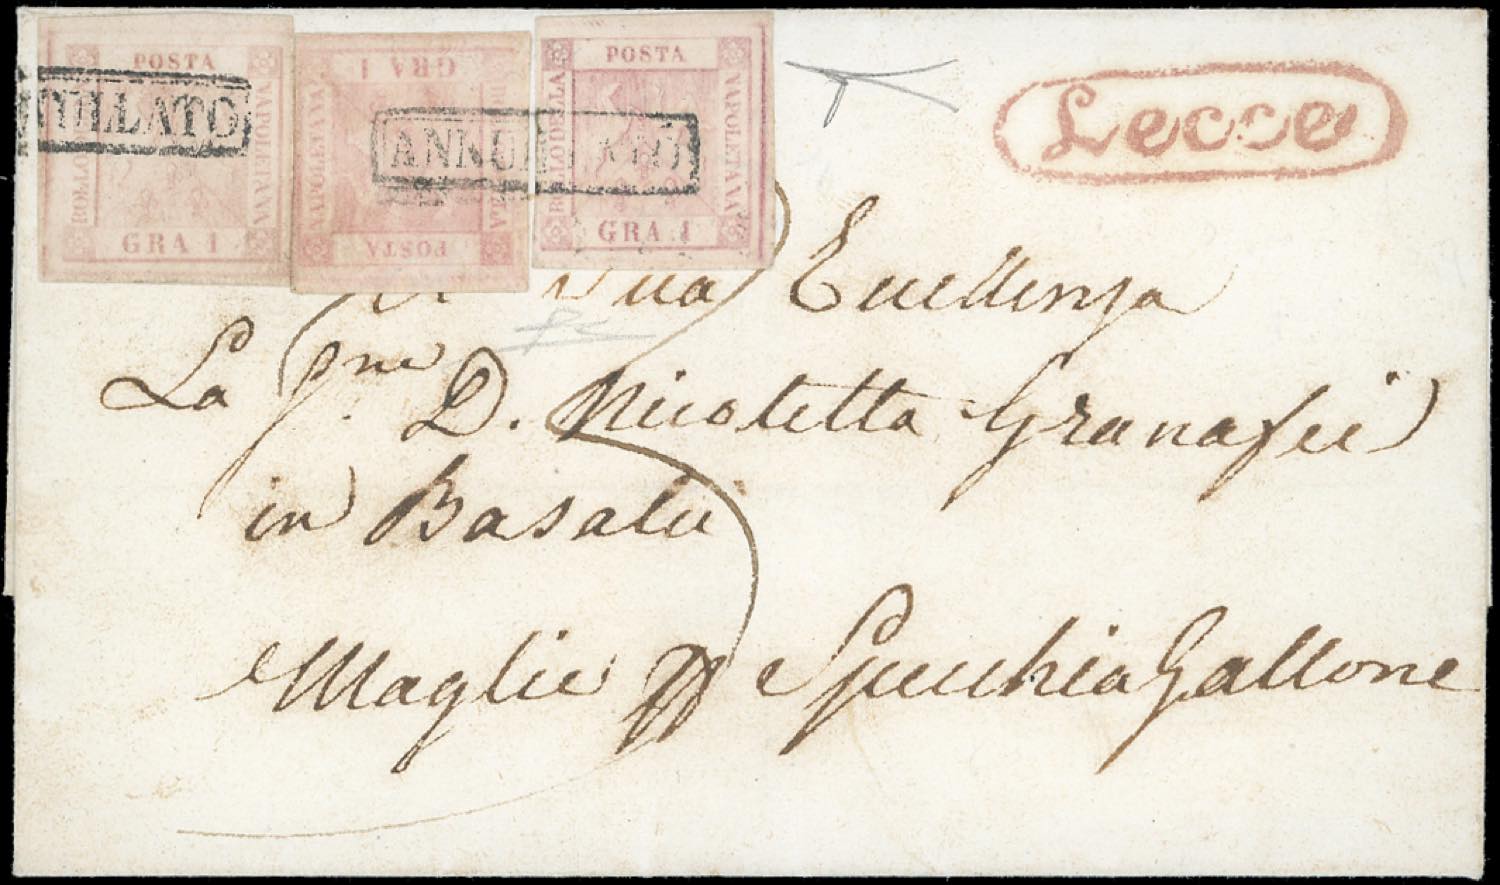 POSTA
BOLLO DELLA
NAPOLETANA
GRA 1
NULLATO
GRA 1
NAPOLETANA
POSTA
ANNULLATO
POSTA
BOLLO DELLA
NAPOLETANA
GRA 1
Lecce
Sua Eccellenza
La Sig.ra D. Nicoletta Granafei
in Basalu
Maglie Specchia Gallone